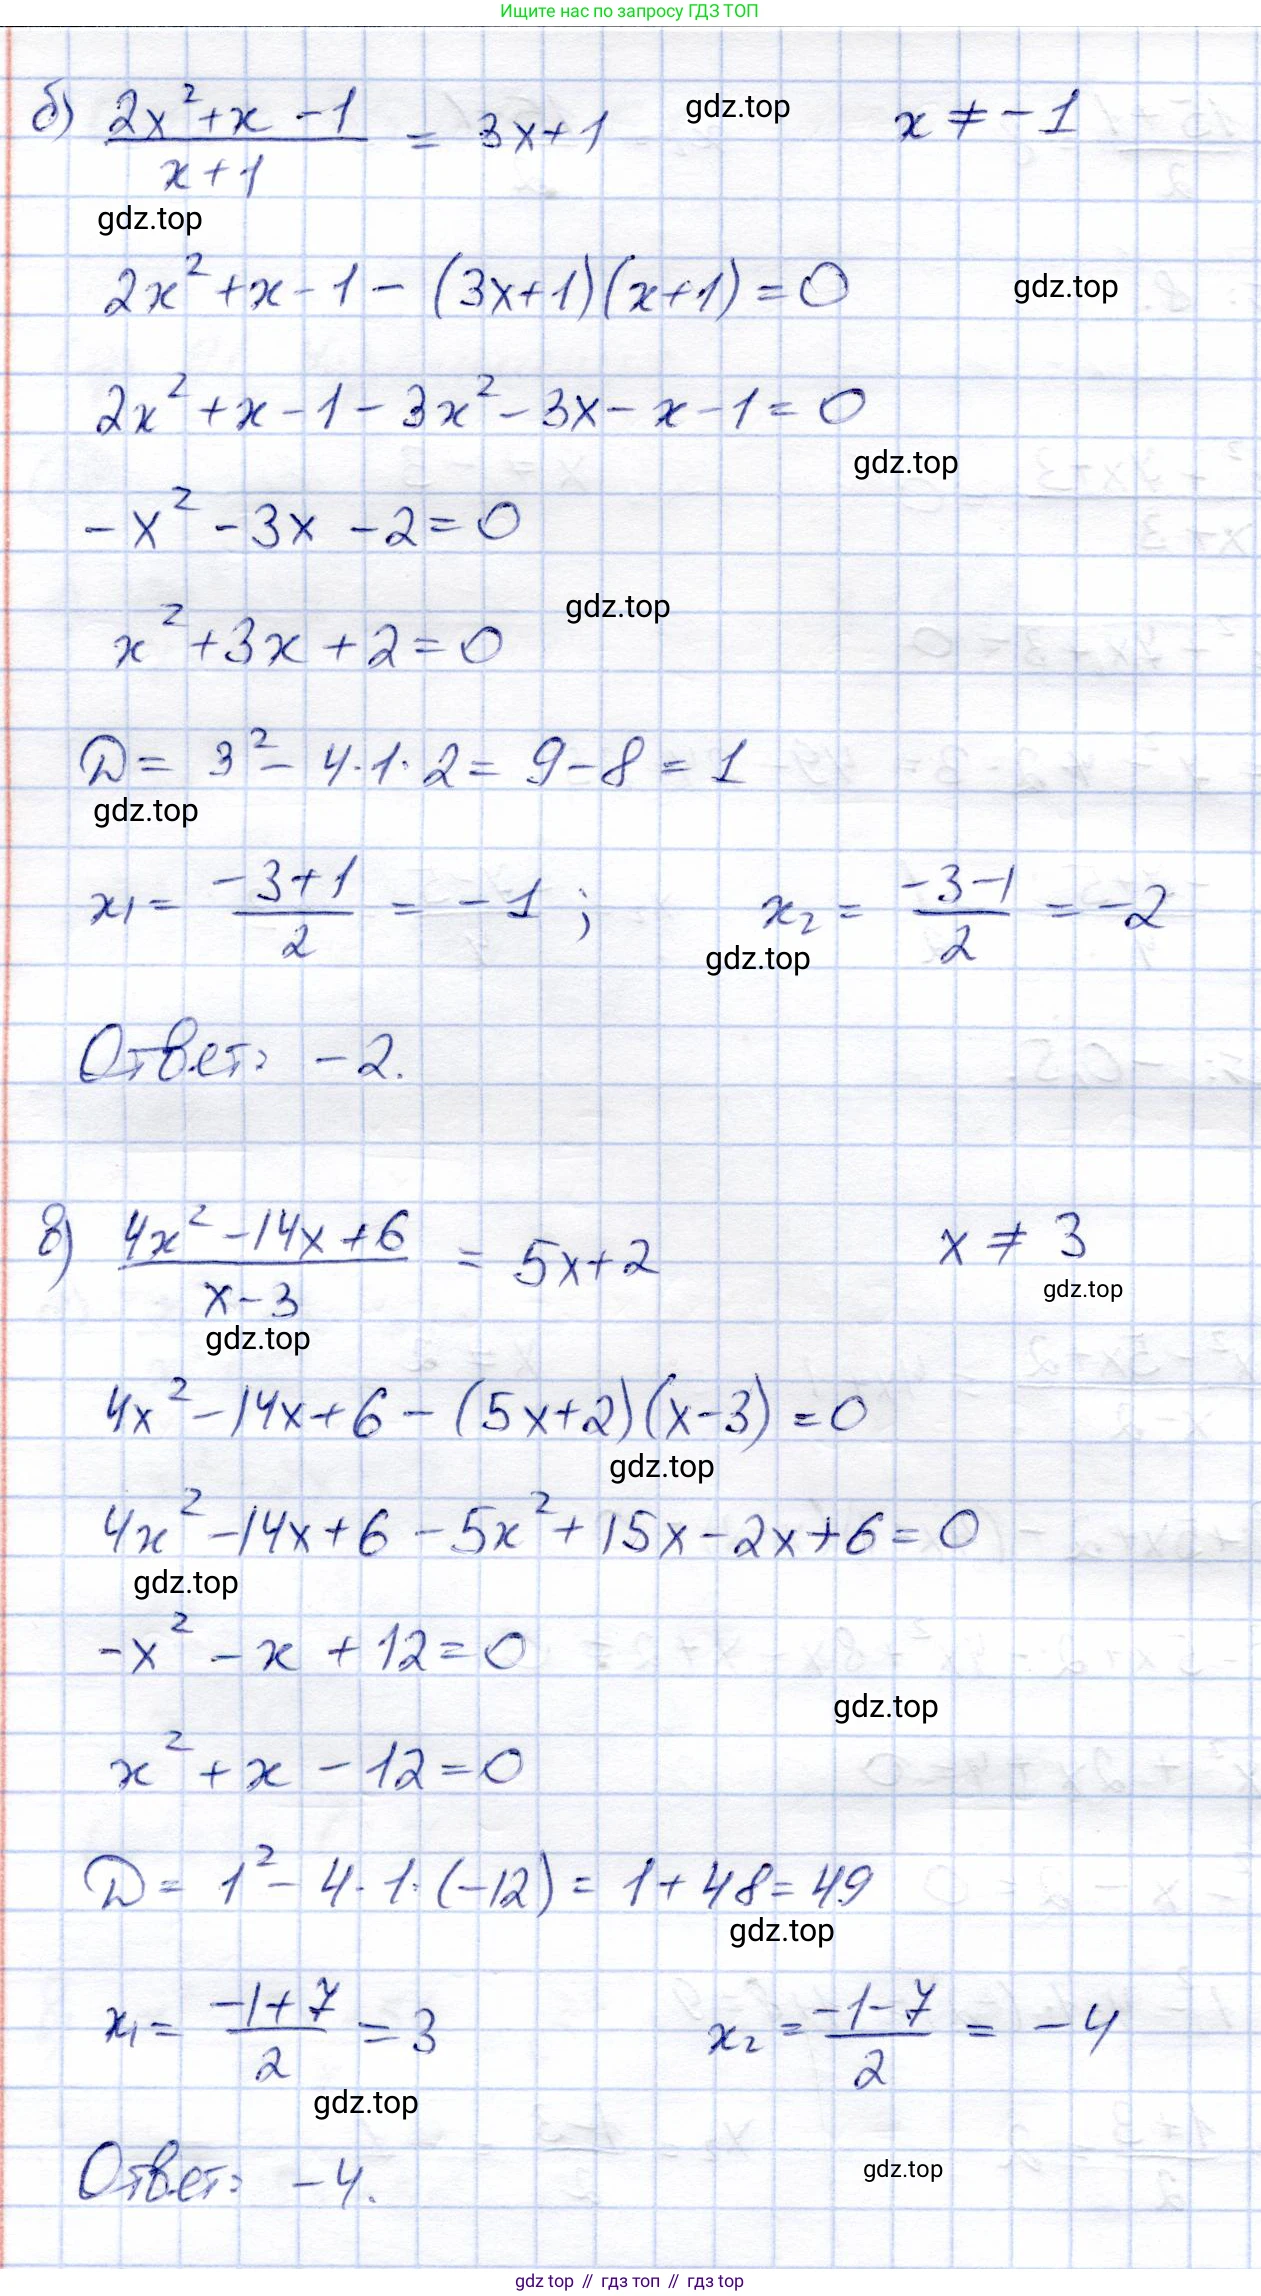 Ищите нас по запросу ГДЗ ТОП
б) (2x²+x-1)/(x+1) = 3x+1 gdz.top x ≠ -1
gdz.top
2x²+x-1-(3x+1)(x+1)=0 gdz.top
2x²+x-1-3x²-3x-x-1=0
gdz.top
-x²-3x-2=0
gdz.top
x²+3x+2=0
D = 3²-4·1·2 = 9-8 = 1
gdz.top
x₁ = (-3+1)/2 = -1 ; x₂ = (-3-1)/2 = -2
gdz.top
Ответ: -2.
в) (4x²-14x+6)/(x-3) = 5x+2 x ≠ 3
gdz.top
gdz.top
4x²-14x+6-(5x+2)(x-3)=0
gdz.top
4x²-14x+6-5x²+15x-2x+6=0
gdz.top
-x²-x+12=0
gdz.top
x²+x-12=0
D = 1²-4·1·(-12) = 1+48 = 49
gdz.top
x₁ = (-1+7)/2 = 3 x₂ = (-1-7)/2 = -4
gdz.top
Ответ: -4.
gdz.top
gdz top // гдз топ // гдз top